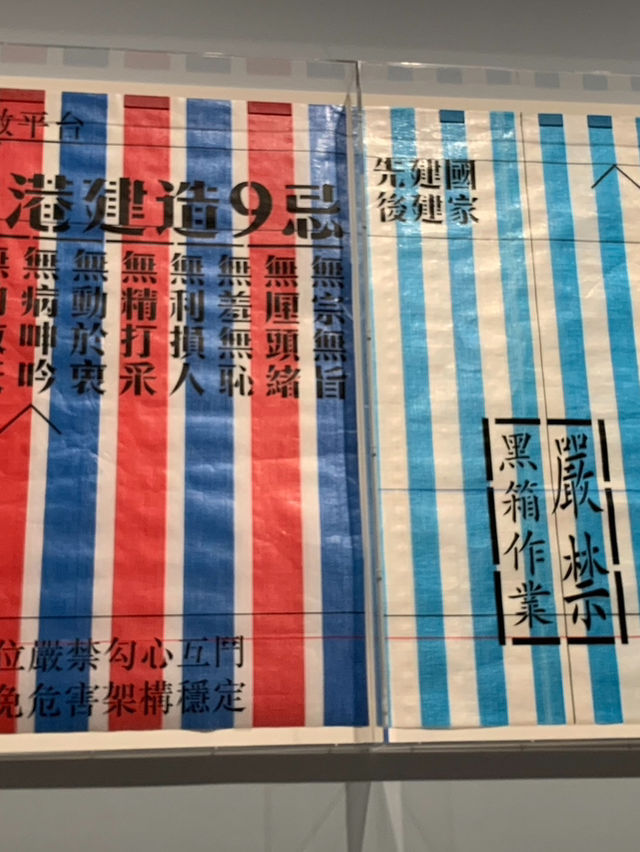 平台
港建造9忌
無宗無旨
無厘頭緒
無羞無恥
無利損人
無精打采
無動於衷
無病呻吟
無
位嚴禁勾心互鬥
免危害架構穩定
先建國
後建家
嚴禁
黑箱作業